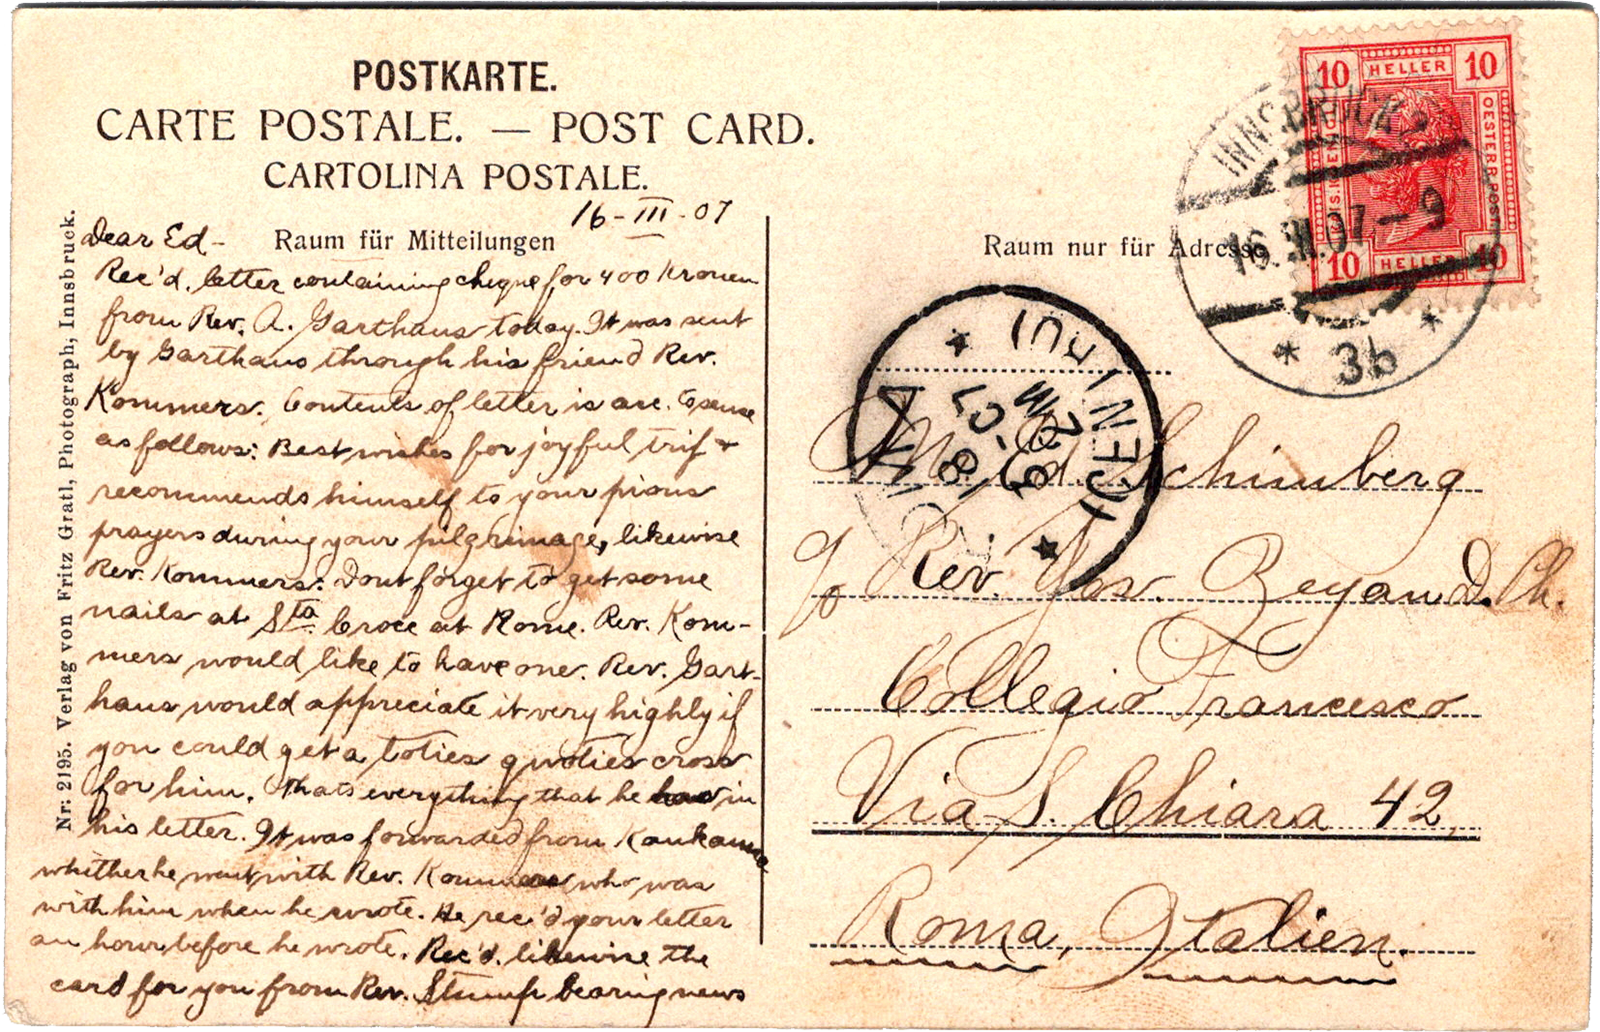 POSTKARTE.
CARTE POSTALE. — POST CARD.
CARTOLINA POSTALE.
Raum für Mitteilungen
Raum nur für Adresse
Nr: 2195. Verlag von Fritz Gratl, Photograph, Innsbruck.
16-III-07
Dear Ed-
Rec'd. letter containing cheque for 400 Kronen
from Rev. A. Garthaus today. It was sent
by Garthaus through his friend Rev.
Kommers. Contents of letter is acc. to sense
as follows: Best wishes for joyful trip &
recommends himself to your pious
prayers during your pilgrimage, likewise
Rev. Kommers: Dont forget to get some
nails at Sta. Croce at Rome. Rev. Kom-
mers would like to have one. Rev. Gart-
haus would appreciate it very highly if
you could get a toties quoties cross
for him. Thats everything that he has in
his letter. It was forwarded from Kaukauna
whither he went with Rev. Kommers who was
with him when he wrote. He rec'd your letter
an hour before he wrote. Rec'd. likewise the
card for you from Rev. Stumpf bearing news
10 HELLER 10
OESTERR. POST
10 HELLER 10
INNSBRUCK 2
16. III. 07.-9
* 3b *
18 3 07
Mr. Ed. Schimberg
c/o Rev. Jos. Beyan D. Ph.
Collegio Francesco
Via S. Chiara 42,
Roma, Italien.